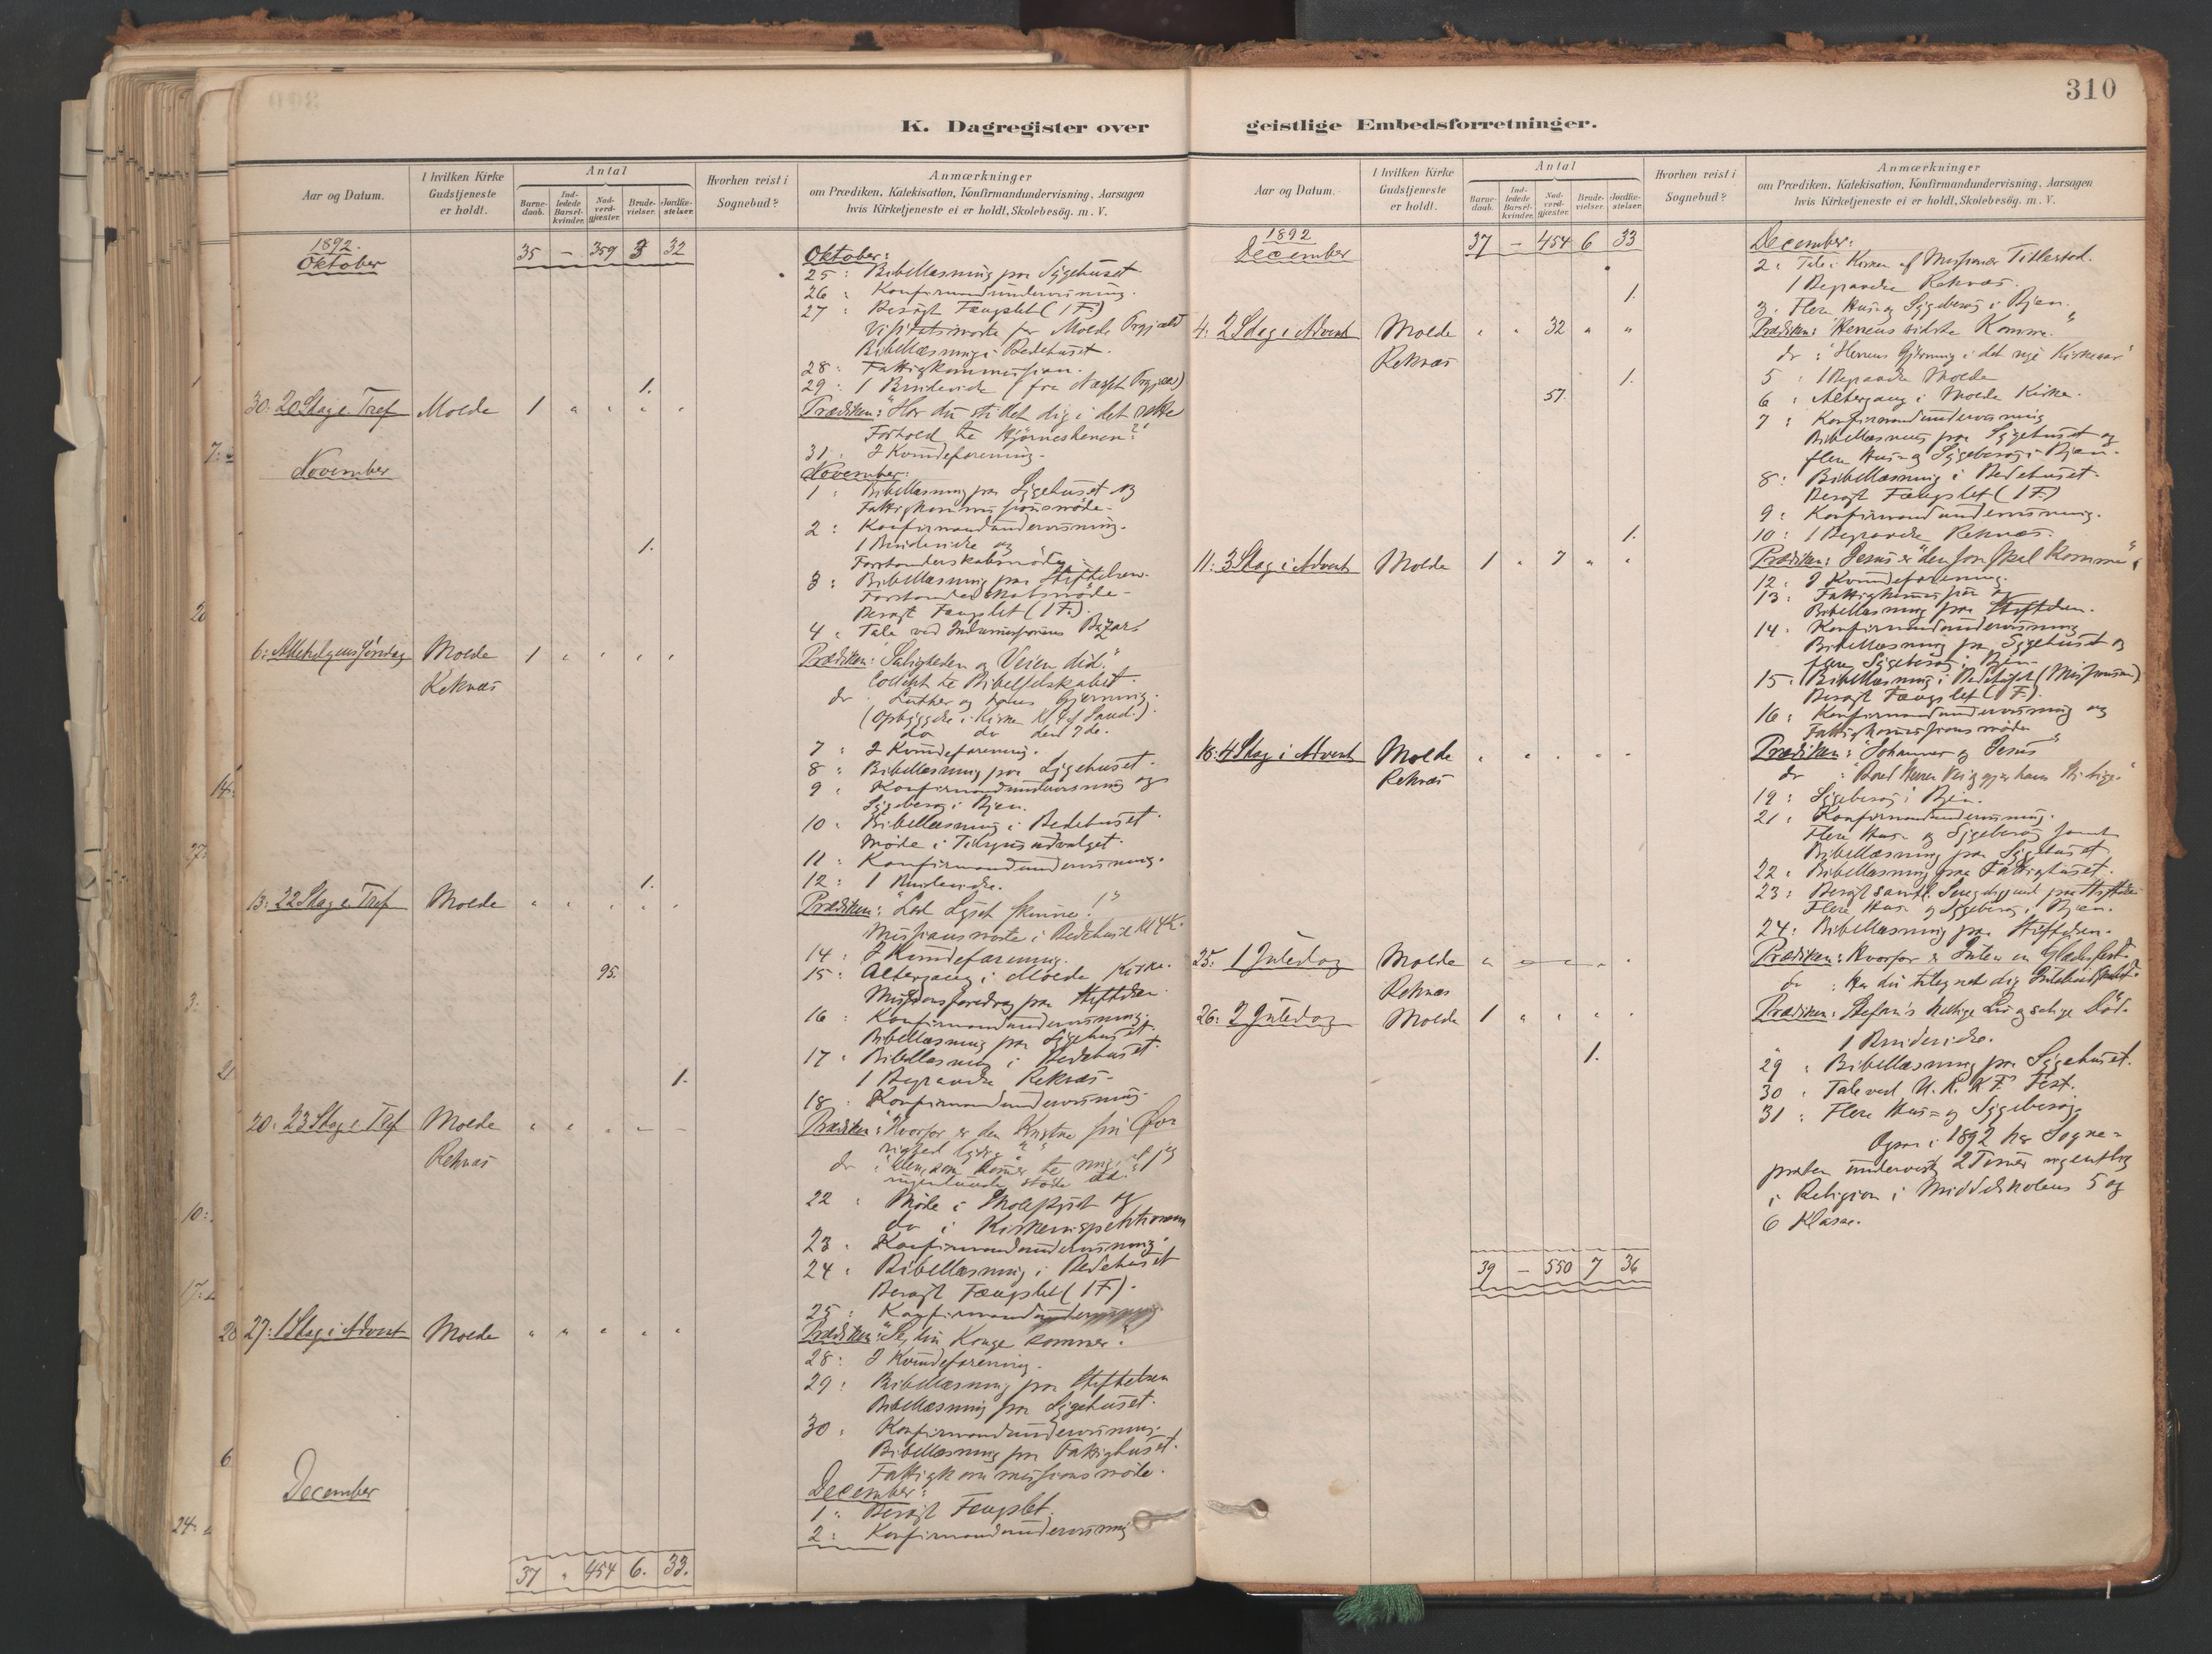 310
K. Dagregister over
geistlige Embedsforretninger.
Aar og Datum.
I hvilken Kirke Gudstjeneste er holdt.
Antal
Barne-daab.
Ind-ledede Barsel-kvinder.
Nad-verd-gjæster.
Brude-vielser.
Jordfæ-stelser.
Hvorhen reist i Sognebud?
Anmærkninger
om Prædiken, Katekisation, Konfirmandundervisning, Aarsagen
hvis Kirketjeneste ei er holdt, Skolebesøg. m. V.
1892.
Oktober
35 – 359 3 32
Oktober:
25: Bibellæsning paa Sygehuset
26: Konfirmandundervisning.
27: Besøgt Fængslet (1 F.)
Molde
Bibellæsning i Bedehuset.
28: Fattigkommission.
29: 1 Brudevielse (fra
1.
30: 20 Sdag e. Tref Molde 1 " " " "
Prædiken: "Har du stillet dig i det rette
Forhold til Hjørnestenen?"
31: I Kvindeforening.
November
November:
1: Bibellæsning paa Sygehuset og
Fattigkommissionsmøde.
2: Konfirmandundervisning.
1 Brudevielse og
1.
Forstanderskabsmøde
3: Bibellæsning paa Stiftelsen.
Forstanderskabsmøde.
Besøgt Fængslet (1 F.).
4: Tale ved Indremissionens Bazar.
6: Allehelgens Søndag Molde 1 " " " "
Prædiken: "Saligheden og Veien did."
Collect til Bibelselskabet.
Reknæs
do Luther og hans Gjerning.
do do den 7de.
7: I Kvindeforening.
8: Bibellæsning paa Sygehuset.
9: Konfirmandundervisning og
Sygebesøg i Byen.
10: Bibellæsning i Bedehuset.
Møde i Tilsynsudvalget.
11: Konfirmandundervisning.
12: 1 Brudevielse.
1.
13: 22 Sdag e. Tref Molde " " " " "
Prædiken: "Lad Lyset skinne!"
Missionsmøde i Bedehuset
14: I Kvindeforening.
15: Altergang i Molde Kirke.
95.
Missionsforedrag paa Stiftelsen.
16: Konfirmandundervisning.
Bibellæsning paa Sygehuset.
17: Bibellæsning i Bedehuset.
1 Begravelse Reknæs.
1.
18: Konfirmandundervisning.
20: 23 Sdag e. Tref Molde " " " – –
Prædiken: "Hvorfor er den Kristne sin Øv-
righed lydig?"
Reknæs
22: Møde i Skolestyret og
do i Kirkeinspektionen
23: Konfirmandundervisning.
24: Bibellæsning i Bedehuset
Besøgt Fængslet (1 F).
25: Konfirmandundervisning.
27: 1 Sdag i Advent Molde " " " " "
Prædiken: "Se, din Konge kommer."
28: I Kvindeforening.
29: Bibellæsning paa Stiftelsen
Bibellæsning paa Sygehuset.
30: Konfirmandundervisning.
Bibellæsning paa Fattighuset.
Fattigkommissionsmøde.
December
December:
1: Besøgt Fængslet.
2: Konfirmandundervisning
37 " 454 6. 33.
Aar og Datum.
I hvilken Kirke Gudstjeneste er holdt.
Antal
Barne-daab.
Ind-ledede Barsel-kvinder.
Nad-verd-gjæster.
Brude-vielser.
Jordfæ-stelser.
Hvorhen reist i Sognebud?
Anmærkninger
om Prædiken, Katekisation, Konfirmandundervisning, Aarsagen
hvis Kirketjeneste ei er holdt, Skolebesøg. m. V.
1892
December
37 – 454 6 33
December:
2: Tale i Kirken af Missionær Titlestad.
1 Begravelse Reknæs.
1.
3: Flere Hus- og Sygebesøg i Byen.
4: 2 Sdag i Advent Molde " " 32 " "
Prædiken: "Herrens sidste Komme."
Reknæs
do : "Herrens Gjerning i det nye Kirkeaar"
5: 1 Begravelse Molde
1.
6: Altergang i Molde Kirke.
57.
7: Konfirmandundervisning
Bibellæsning paa Sygehuset og
flere Hus- og Sygebesøg i Byen.
8: Bibellæsning i Bedehuset.
Besøgt Fængslet (1 F.)
9: Konfirmandundervisning.
10: 1 Begravelse Reknæs.
1.
11: 3 Sdag i Advent Molde 1 " 7 " "
Prædiken: Jesus er "den som skal komme".
12: I Kvindeforening.
13: Fattigkommission og
Bibellæsning paa Stiftelsen.
14: Konfirmandundervisning
Bibellæsning paa Sygehuset og
flere Sygebesøg i Byen.
15: Bibellæsning i Bedehuset (Missionen)
Besøgt Fængslet (1 F.).
16: Konfirmandundervisning og
Fattigkommissionsmøde
18: 4 Sdag i Advent Molde " " " " "
Prædiken: "Johannes og Jesus"
Reknæs
19: Sygebesøg i Byen.
21: Konfirmandundervisning.
Flere Hus- og Sygebesøg samt
Bibellæsning paa Sygehuset
22: Bibellæsning paa Fattighuset.
23: Besøgt
Flere Hus- og Sygebesøg i Byen.
24: Bibellæsning paa Stiftelsen.
25: 1 Juledag Molde
Prædiken: Hvorfor er Julen en Glædesfest.
Reknæs
do : Har du tilegnet dig
26: 2 Juledag Molde 1 " " " "
Prædiken: Stefan's hellige Liv og salige Død.
1 Brudevielse.
1.
29: Bibellæsning paa Sygehuset.
30: Tale ved U. K. K F. Fest.
31: Flere Hus- og Sygebesøg.
Ogsaa i 1892 har Sogne-
præsten undervist 2 Timer ugentlig
i Religion i Middelskolens 5 og
6 Klasse.
39 – 550 7 36